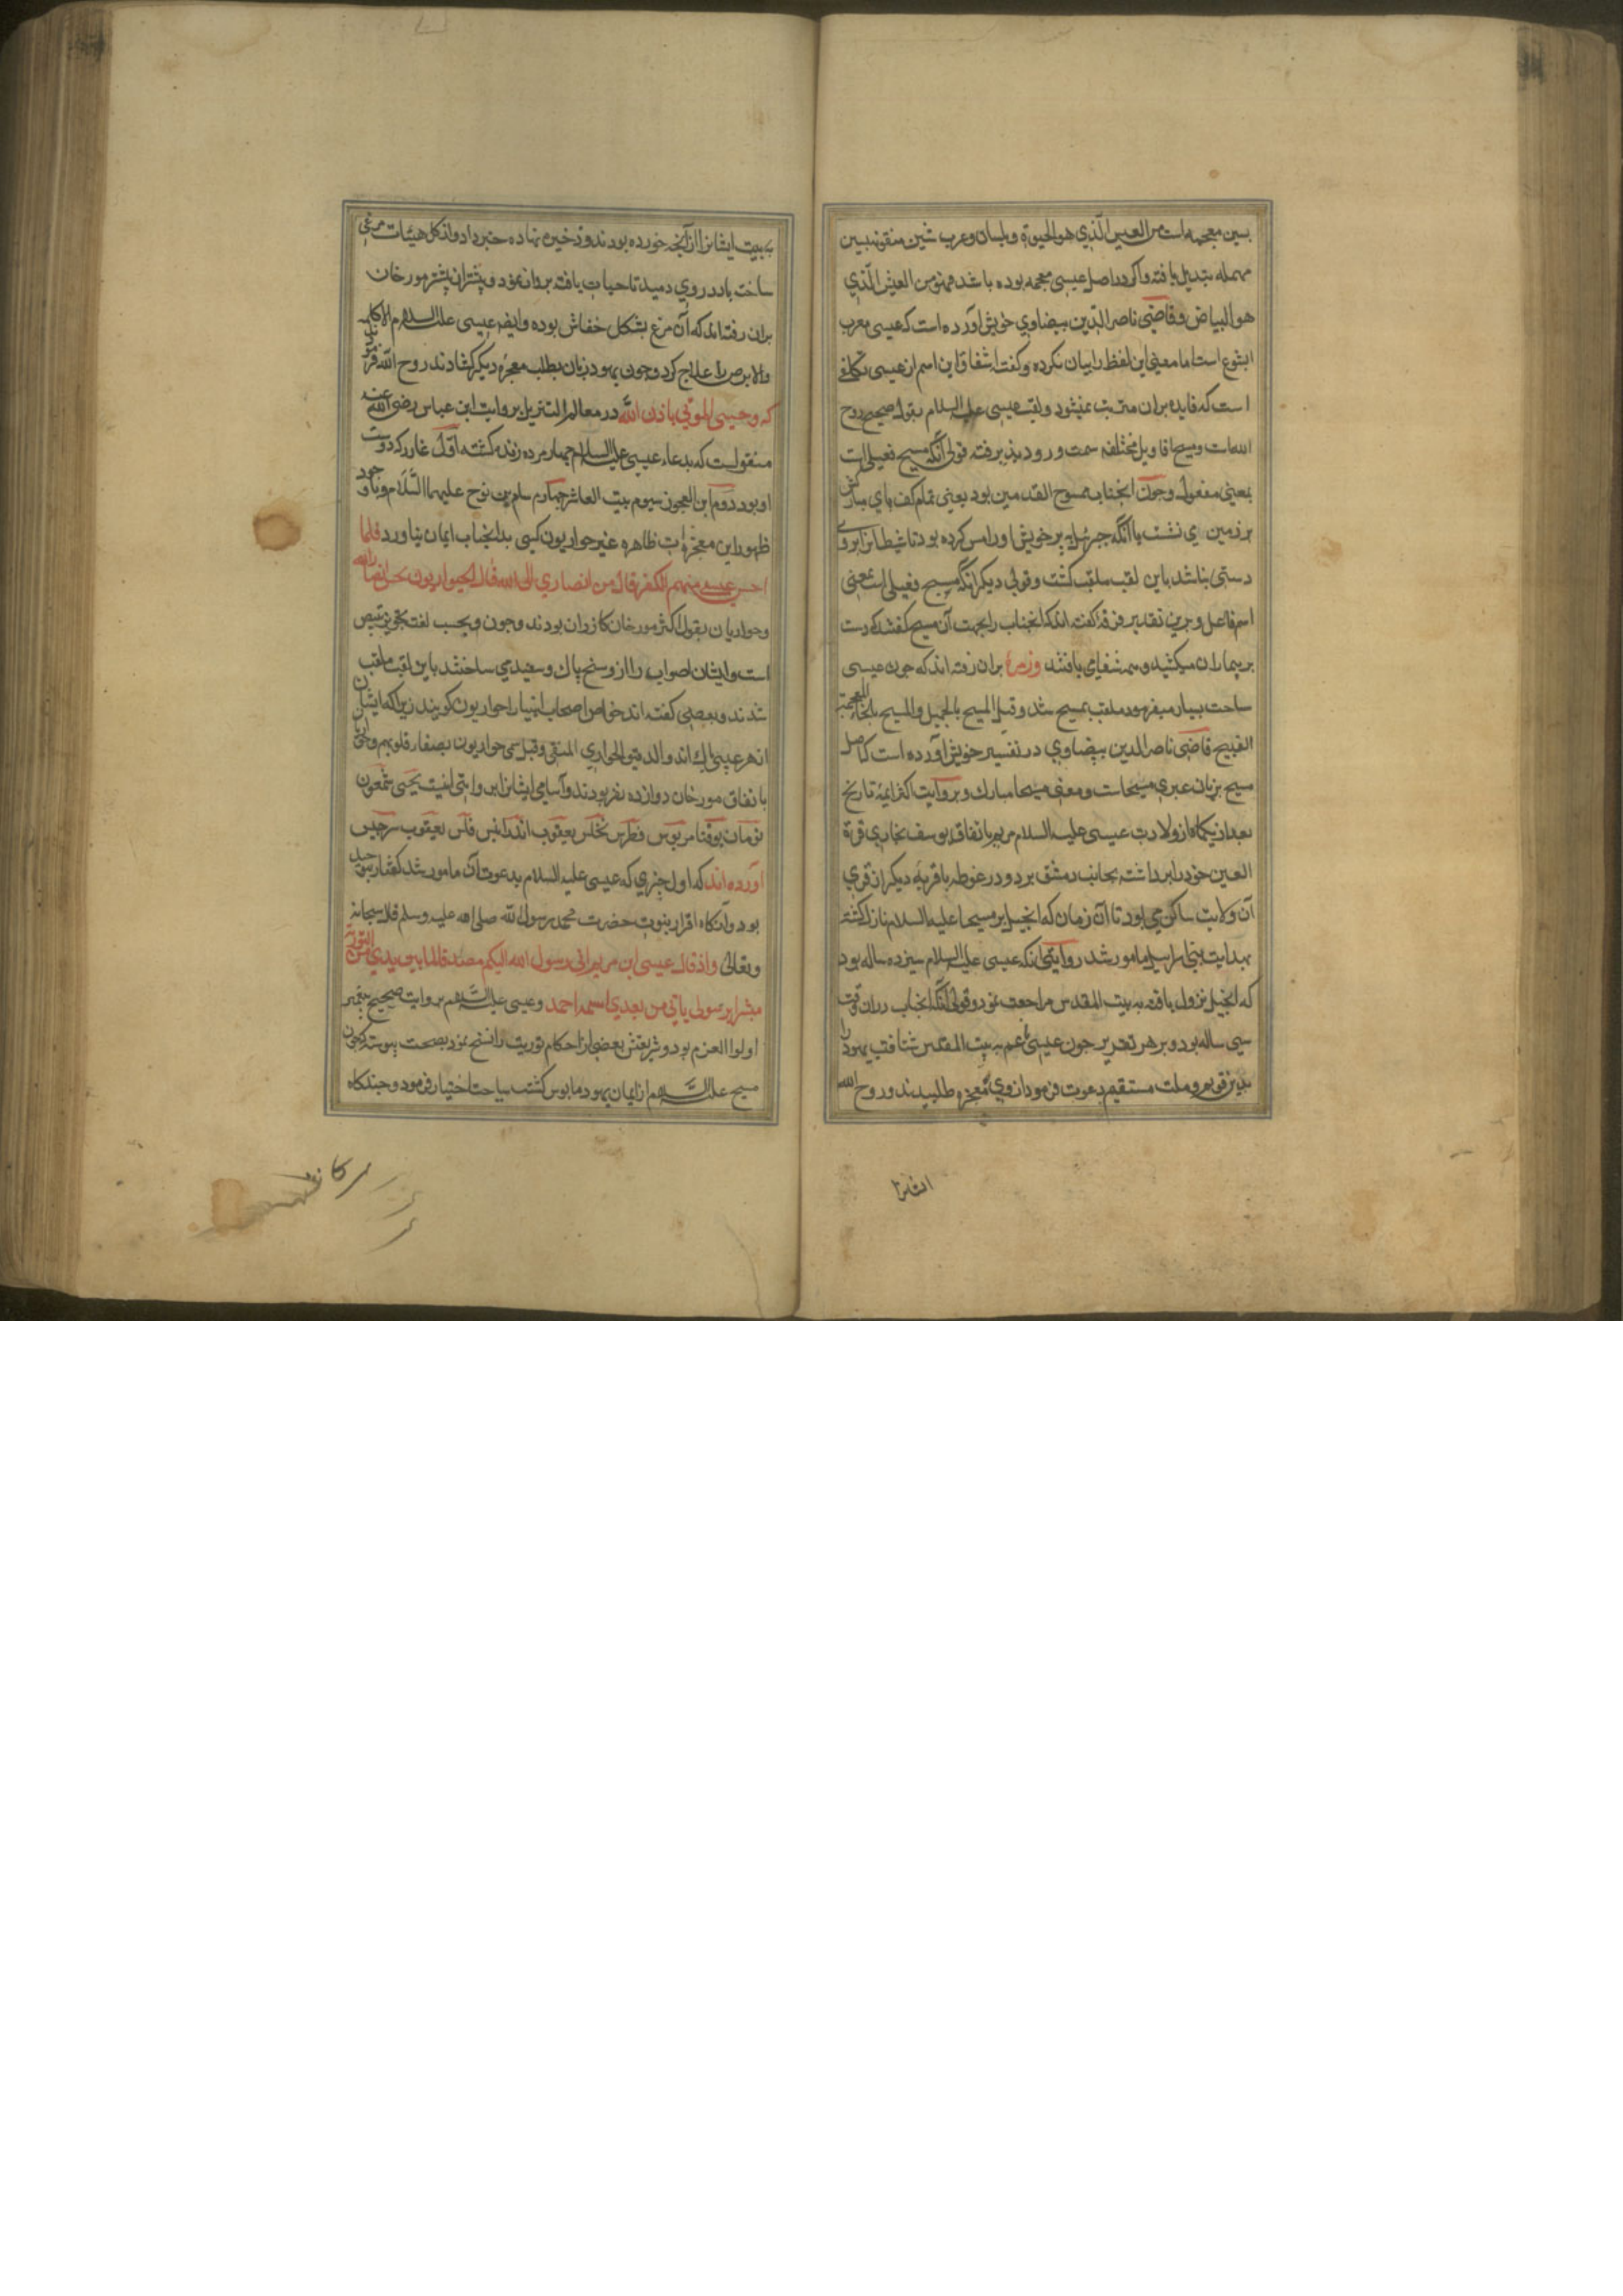 بسین معجمه است من العیس الّذی هو الحیوة و بلسان عرب شین منقوطه بسین
مهمله تبدیل یافته و اکر در اصل عیسی معجمه بوده باشد فهو من العیش الّذی
هو البیاض و قاضی ناصر الدّین بیضاوی در خویش آورده است که عیسی معرب
ایشوع است اما معنی این لفظ را بیان نکرده و کفته اشتقاق این اسم از عیس تکلفی
است که فایده بران مترتب نمیشود و لقب عیسی علیه السلام بقول صحیح روح
الله است و مسیح اقاویل مختلفه سمت ورود پذیرفته قولی آنکه مسیح فعیلی است
بمعنی مفعول و چون آنجناب ممسوح القدمین بود یعنی تمام کف پای مبارکش
بر زمین می نشست یا آنکه جبرئیل پر خویش او را مس کرده بود تا شیطانرا بر وی
دستی نباشد باین لقب ملقب کشت و قولی دیکر آنکه مسیح فعیلی است بمعنی
اسم فاعل و برین تقدیر فرقه کفته اند که آنجناب را بجهت آن مسیح کفتند که دست
بر بیماران میکشید و همه شفا می یافتند و زمره بران رفته اند که چون عیسی
ساحت بسیار میفرمود ملقب بمسیح شد و قیل المسیح بالجمیل والمسیح بالخاء المعجمة
القبیح قاضی ناصر الدین بیضاوی در تفسیر خویش آورده است که اصل
مسیح بزبان عبری مشیحاست و معنی مشیحا مبارک و بروایت اکثر ایمه تاریخ
بعد از یکماه از ولادت عیسی علیه السلام مریم باتفاق یوسف نجاری قرة
العین خود را برداشته بجانب دمشق برد و در غوطه یا قریه دیکر از قری
آن ولایت ساکن می بود تا آن زمان که انجیل بر مسیحا علیه السلام نازل کشته
بهدایت بنی اسرائیل مامور شد روایتی آنکه عیسی علیه السلام سیزده ساله بود
که انجیل نزول یافته به بیت المقدس مراجعت نمود و قولی آنکه آنجناب دران وقت
سی ساله بود و بر هر تقدیر چون عیسی عم به بیت المقدس شتافت یهود را
بدین قویم و ملت مستقیم دعوت فرمود از وی معجزه طلبیدند و روح الله
ایشانرا
به بیت ایشانرا از آنچه خورده بودند و ذخیره نهاده خبر داد و از کل هیئات مرغی
ساخت باد در وی دمید تا حیات یافته پرواز نمود و بیشتر مورخان
بران رفته اند که آن مرغ بشکل خفاش بوده و ایضا عیسی علیه السلام الاکمه
والابرص را علاج کرد و چون یهود زبان بطلب معجزه دیکر کشادند روح الله فرمود
که و احیی الموتی باذن الله در معالم التنزیل بروایت ابن عباس رضی الله عنه
منقولست که بدعاء عیسی علیه السلام چهار مرده زنده کشته اوّل عازر که دوست
او بود دوم ابن العجوز سیوم بیت العاشر چهارم سام بن نوح علیهما السّلام و با وجود
ظهور این معجزات ظاهره غیر حواریون کسی بدانجناب ایمان نیاورد فلما
احس عیسی منهم الکفر قال من انصاری الی الله قال الحواریون نحن انصار الله
و حواریان بقول اکثر مورخان کازران بودند و چون و بحسب لغت تحویر تبیض
است و ایشان اصواب را از وسخ پاک و سفید می ساختند باین لقب ملقب
شدند و بعضی کفته اند خواص اصحاب انبیا را حواریون کویند زیرا که ایشان
از هر عیبی پاک اند و الحواری المنقی و قیل سمی حواریون بصفاء قلوبهم و حواریان
باتفاق مورخان دوازده نفر بودند و اسامی ایشان بروایتی اینست یحیی شمعون
تومان یوقنا مریوس فطرس نخلس یعقوب اندرانیس فلس یعقوب سرجیس
آورده اند که اول چیزی که عیسی علیه السلام بدعوت آن مامور شد کفتار توحید
بود و آنکاه اقرار بنبوت حضرت محمد رسول الله صلی الله علیه وسلم قال سبحانه
و تعالی و اذ قال عیسی ابن مریم انی رسول الله الیکم مصدقا لما بین یدی من التوریة
مبشرا برسول یاتی من بعدی اسمه احمد و عیسی علیه السّلام بروایت صحیح پیغمبر
اولوا العزم بود و شریعتش بعضی از احکام توریت را نسخ نمود بصحت پیوسته که چون
مسیح علیه السّلام از ایمان یهود مایوس کشت سیاحت اختیار فرمود و چندکاه